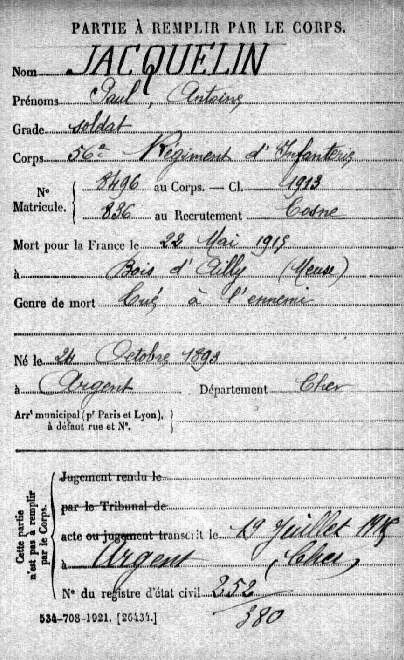 PARTIE À REMPLIR PAR LE CORPS.
Nom JACQUELIN
Prénoms Paul, Antoine
Grade soldat
Corps 56e Régiment d'Infanterie
N° Matricule. { 8496 au Corps. — Cl. 1913
836 au Recrutement Cosne
Mort pour la France le 22 Mai 1915
à Bois d'Ailly (Meuse)
Genre de mort Tué à l'ennemi
Né le 24 Octobre 1893
à Argent Département Cher
Arrt municipal (pr Paris et Lyon), à défaut rue et N°. }
Cette partie n'est pas à remplir par le Corps.
Jugement rendu le
par le Tribunal de
acte ou jugement transcrit le 19 Juillet 1915
à Argent (Cher)
N° du registre d'état civil 252
380
534-708-1921. [26434.]